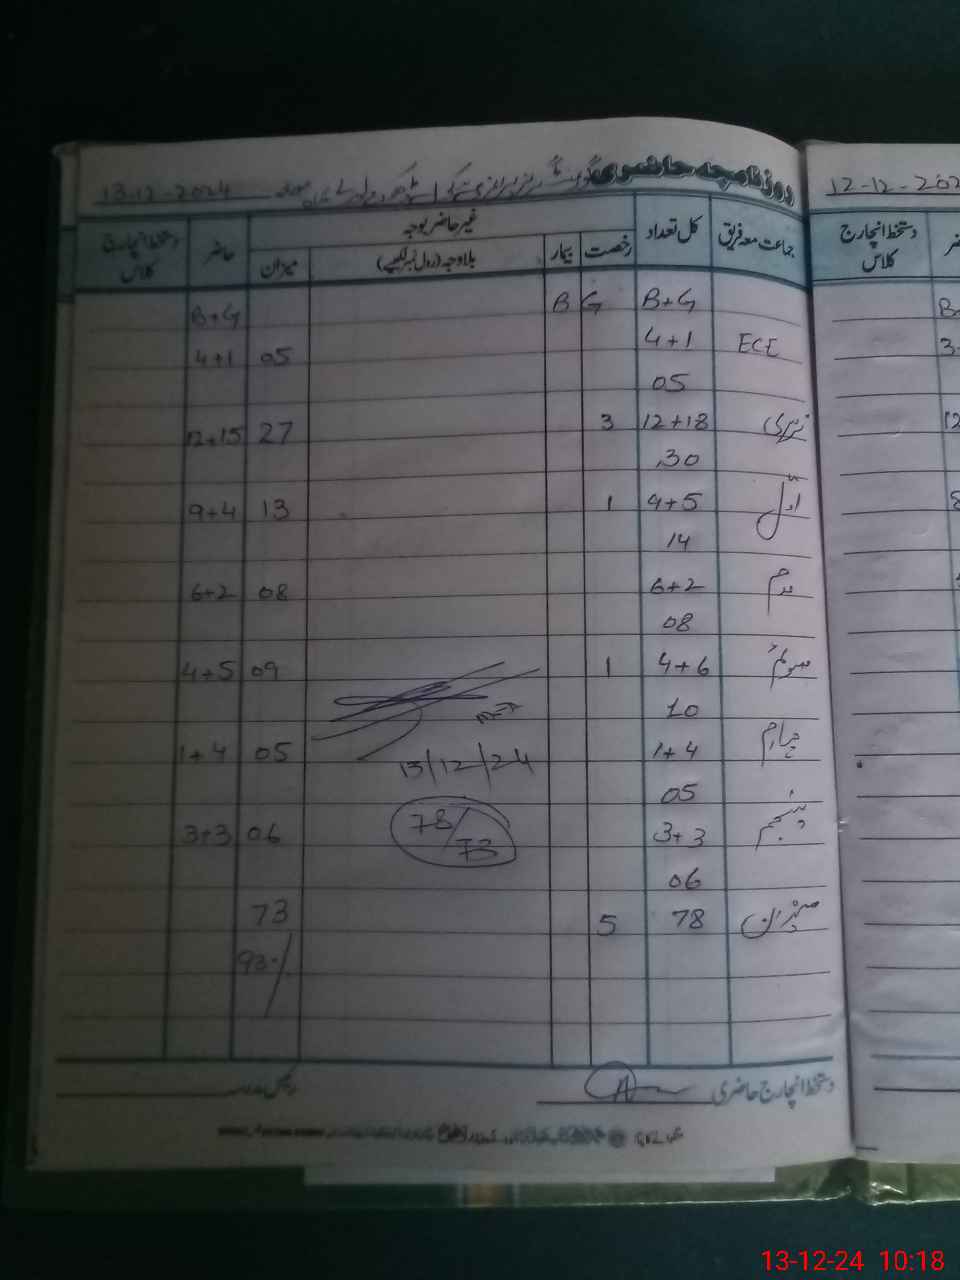 روزنامچہ حاضری
13-12-2024
12-12-202
جماعت معہ فریق کل تعداد غیر حاضر بوجہ حاضر دستخط انچارج کلاس
رخصت بیمار بلا وجہ (رول نمبر لکھیے) میزان
دستخط انچارج کلاس
B+G G B B+G
ECE 4+1 05 4+1
05
نرسری 12+18 3 27 12+15
30
اوّل 9+5 1 13 9+4
14
دوم 6+2 08 6+2
08
سوئم 4+6 1 09 4+5
10
چہارم 1+4 05 1+4
13/12/24
05
پنجم 3+3 06 3+3
78/73
06
میزان 78 5 73
93%
دستخط انچارج حاضری
13-12-24 10:18